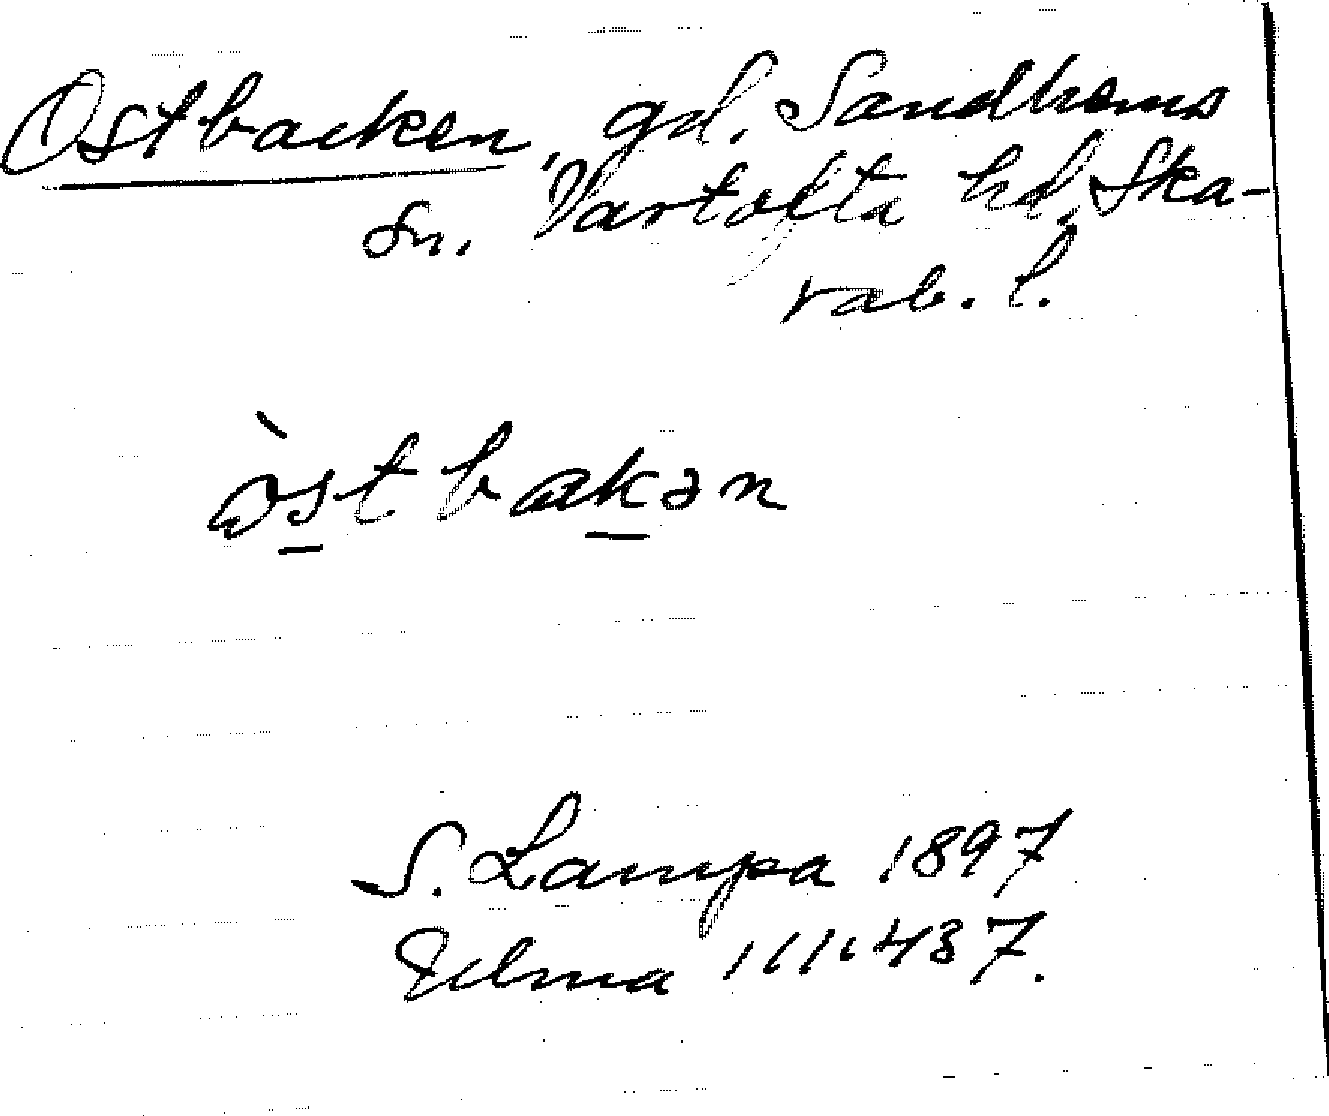 Östbacken, gd. Sandhems
sn. Vartofta hd, Ska-
rab. l.
ɷ̀st bakən
S. Lampa 1897
Ulma 111:437.